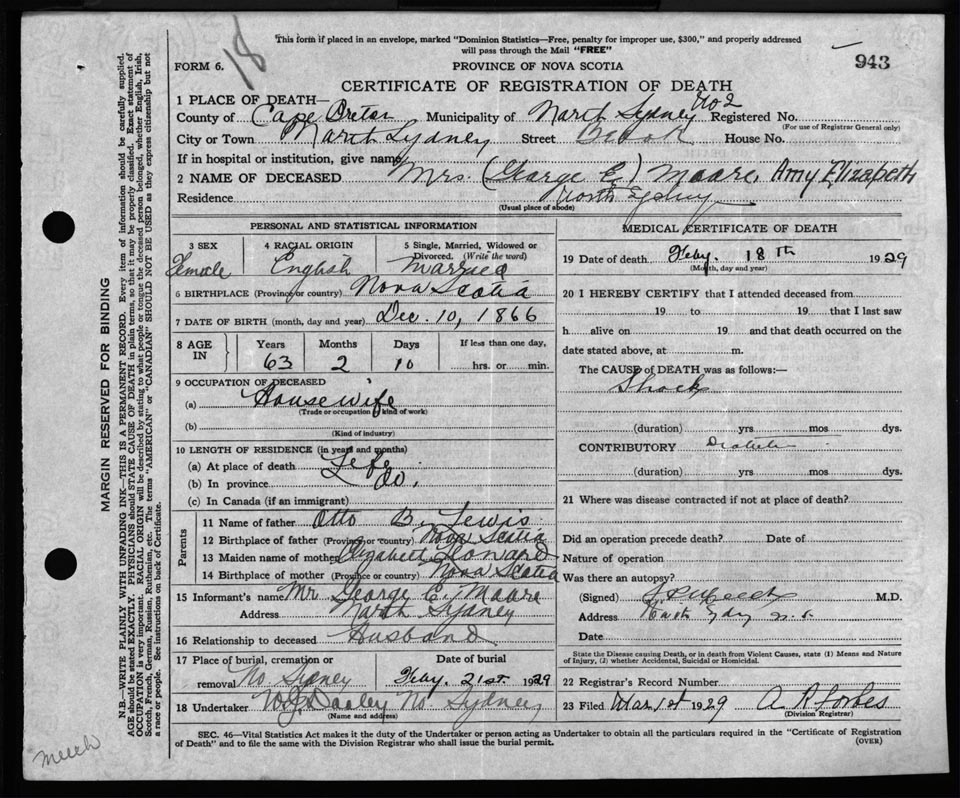 This form if placed in an envelope, marked "Dominion Statistics—Free, penalty for improper use, $300," and properly addressed
will pass through the Mail "FREE"
18
943
FORM 6.
PROVINCE OF NOVA SCOTIA
CERTIFICATE OF REGISTRATION OF DEATH
1 PLACE OF DEATH—
No 2
County of Cape Breton Municipality of North Sydney Registered No.
(For use of Registrar General only)
City or Town North Sydney Street Beook House No.
If in hospital or institution, give name
2 NAME OF DECEASED Mrs. (George E.) Moore, Amy Elizabeth
Residence North Sydney
(Usual place of abode)
PERSONAL AND STATISTICAL INFORMATION
3 SEX 4 RACIAL ORIGIN 5 Single, Married, Widowed or
Divorced. (Write the word)
Female English Married
6 BIRTHPLACE (Province or country) Nova Scotia
7 DATE OF BIRTH (month, day and year) Dec. 10, 1866
8 AGE IN Years Months Days If less than one day,
63 2 10 hrs. or min.
9 OCCUPATION OF DECEASED
(a) Housewife
(Trade or occupation / kind of work)
(b)
(Kind of industry)
10 LENGTH OF RESIDENCE (in years and months)
(a) At place of death Life
(b) In province Do.
(c) In Canada (if an immigrant)
Parents
11 Name of father Otto B. Lewis
12 Birthplace of father (Province or country) Nova Scotia
13 Maiden name of mother Elizabeth Leonard
14 Birthplace of mother (Province or country) Nova Scotia
15 Informant's name Mr George E. Moore
Address North Sydney
16 Relationship to deceased Husband
17 Place of burial, cremation or Date of burial
removal No Sydney Feby. 21st 1929
18 Undertaker W.J. Dooley No. Sydney
(Name and address)
MEDICAL CERTIFICATE OF DEATH
19 Date of death Feby. 18th 1929
(Month, day and year)
20 I HEREBY CERTIFY that I attended deceased from
19 to 19 that I last saw
h alive on 19 and that death occurred on the
date stated above, at m.
The CAUSE of DEATH was as follows:—
Shock
(duration) yrs mos dys.
CONTRIBUTORY Diabetes
(duration) yrs mos dys.
21 Where was disease contracted if not at place of death?
Did an operation precede death? Date of
Nature of operation
Was there an autopsy?
(Signed) M.D.
Address North Sydney N.S.
Date
State the Disease causing Death, or in death from Violent Causes, state (1) Means and
Nature of Injury, (2) whether Accidental, Suicidal or Homicidal.
22 Registrar's Record Number
23 Filed Mar 1st 1929 A. P. Forbes
(Division Registrar)
SEC. 46—Vital Statistics Act makes it the duty of the Undertaker or person acting as Undertaker to obtain all the particulars required in the "Certificate of Registration
of Death" and to file the same with the Division Registrar who shall issue the burial permit.
(OVER)
MARGIN RESERVED FOR BINDING
N.B.—WRITE PLAINLY WITH UNFADING INK—THIS IS A PERMANENT RECORD. Every item of information should be carefully supplied.
AGE should be stated EXACTLY. PHYSICIANS should STATE CAUSE OF DEATH in plain terms, so that it may be properly classified. Exact statement of
OCCUPATION is very important. RACIAL ORIGIN will be described by stating to what people or tongue the deceased person belonged, whether English, Irish,
Scotch, French, German, Russian, Ruthenian, etc. The terms "AMERICAN" or "CANADIAN" SHOULD NOT BE USED as they express citizenship but not
a race or people. See instructions on back of Certificate.
meech